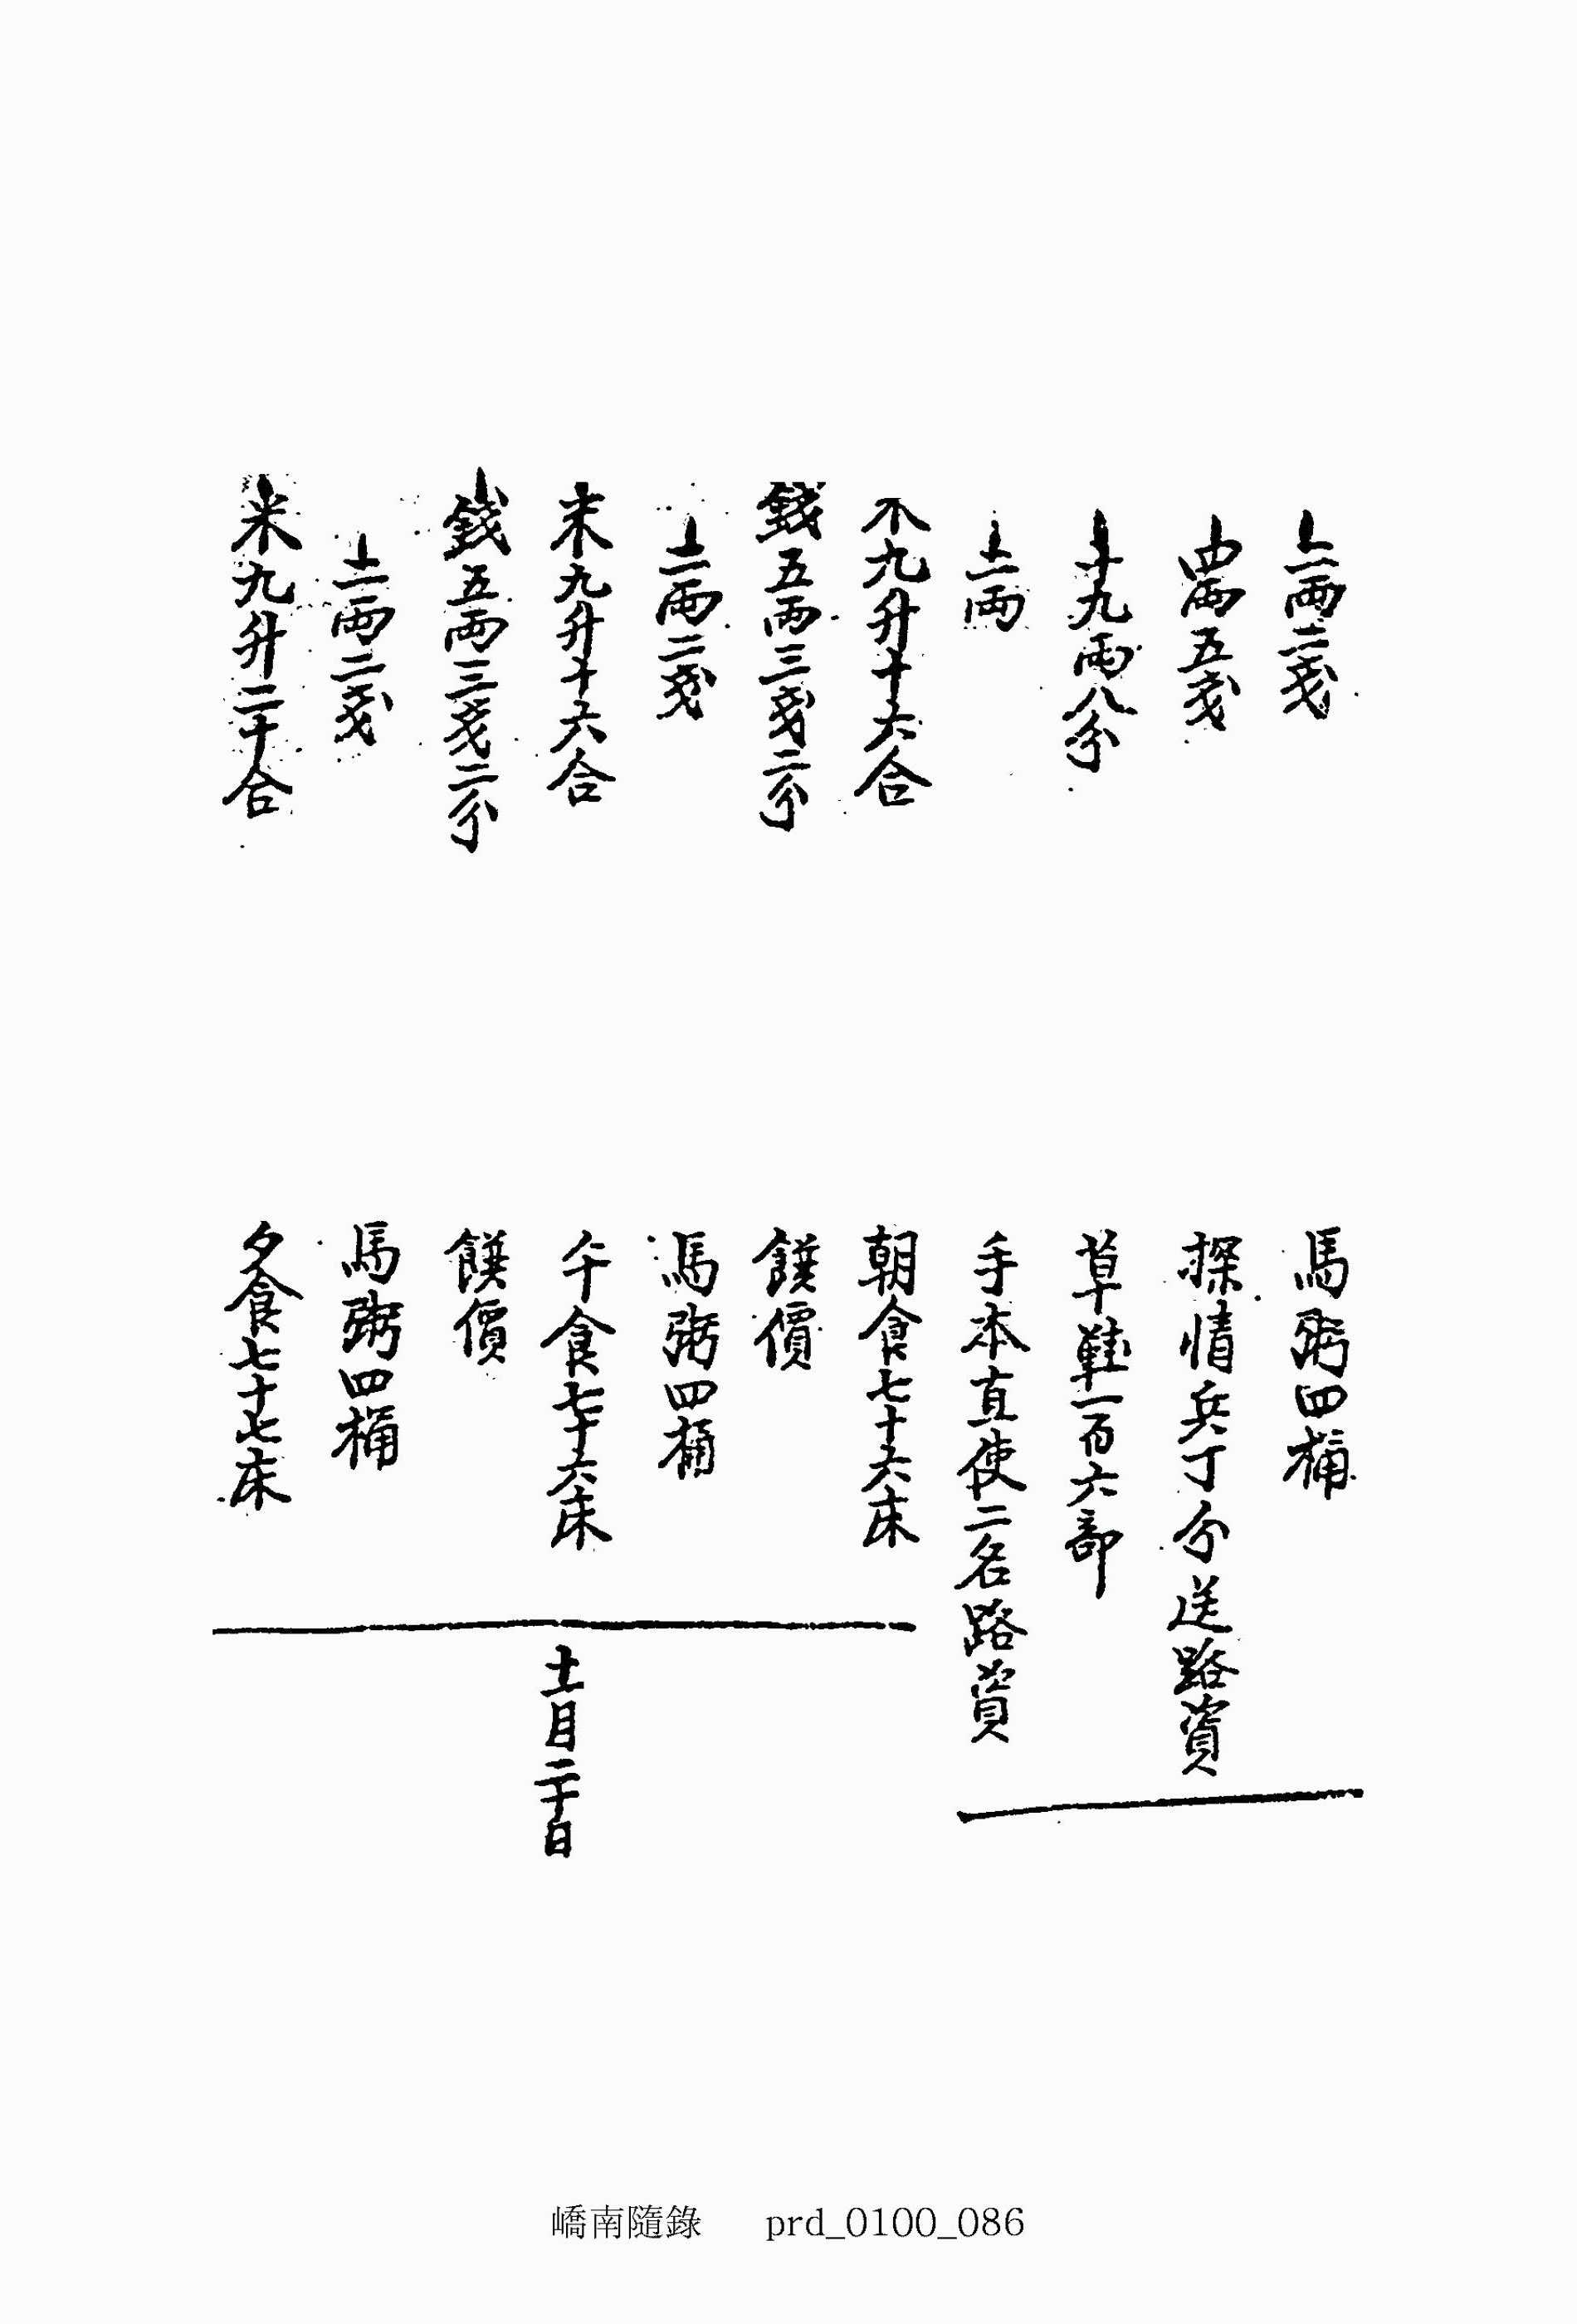 二兩二戔 馬粥四桶
四兩五戔 探情兵丁分送路資
十九兩八分 草鞋一百六部
二兩 手本直使二名路資
米九升十六合 朝食七十六床
錢五兩三戔二分 饌價
二兩二戔 馬粥四桶
米九升十六合 午食七十六床
十一月二十日
錢五兩三戔二分 饌價
二兩二戔 馬粥四桶
米九升二十合 夕食七十七床
嶠南隨錄 prd_0100_086